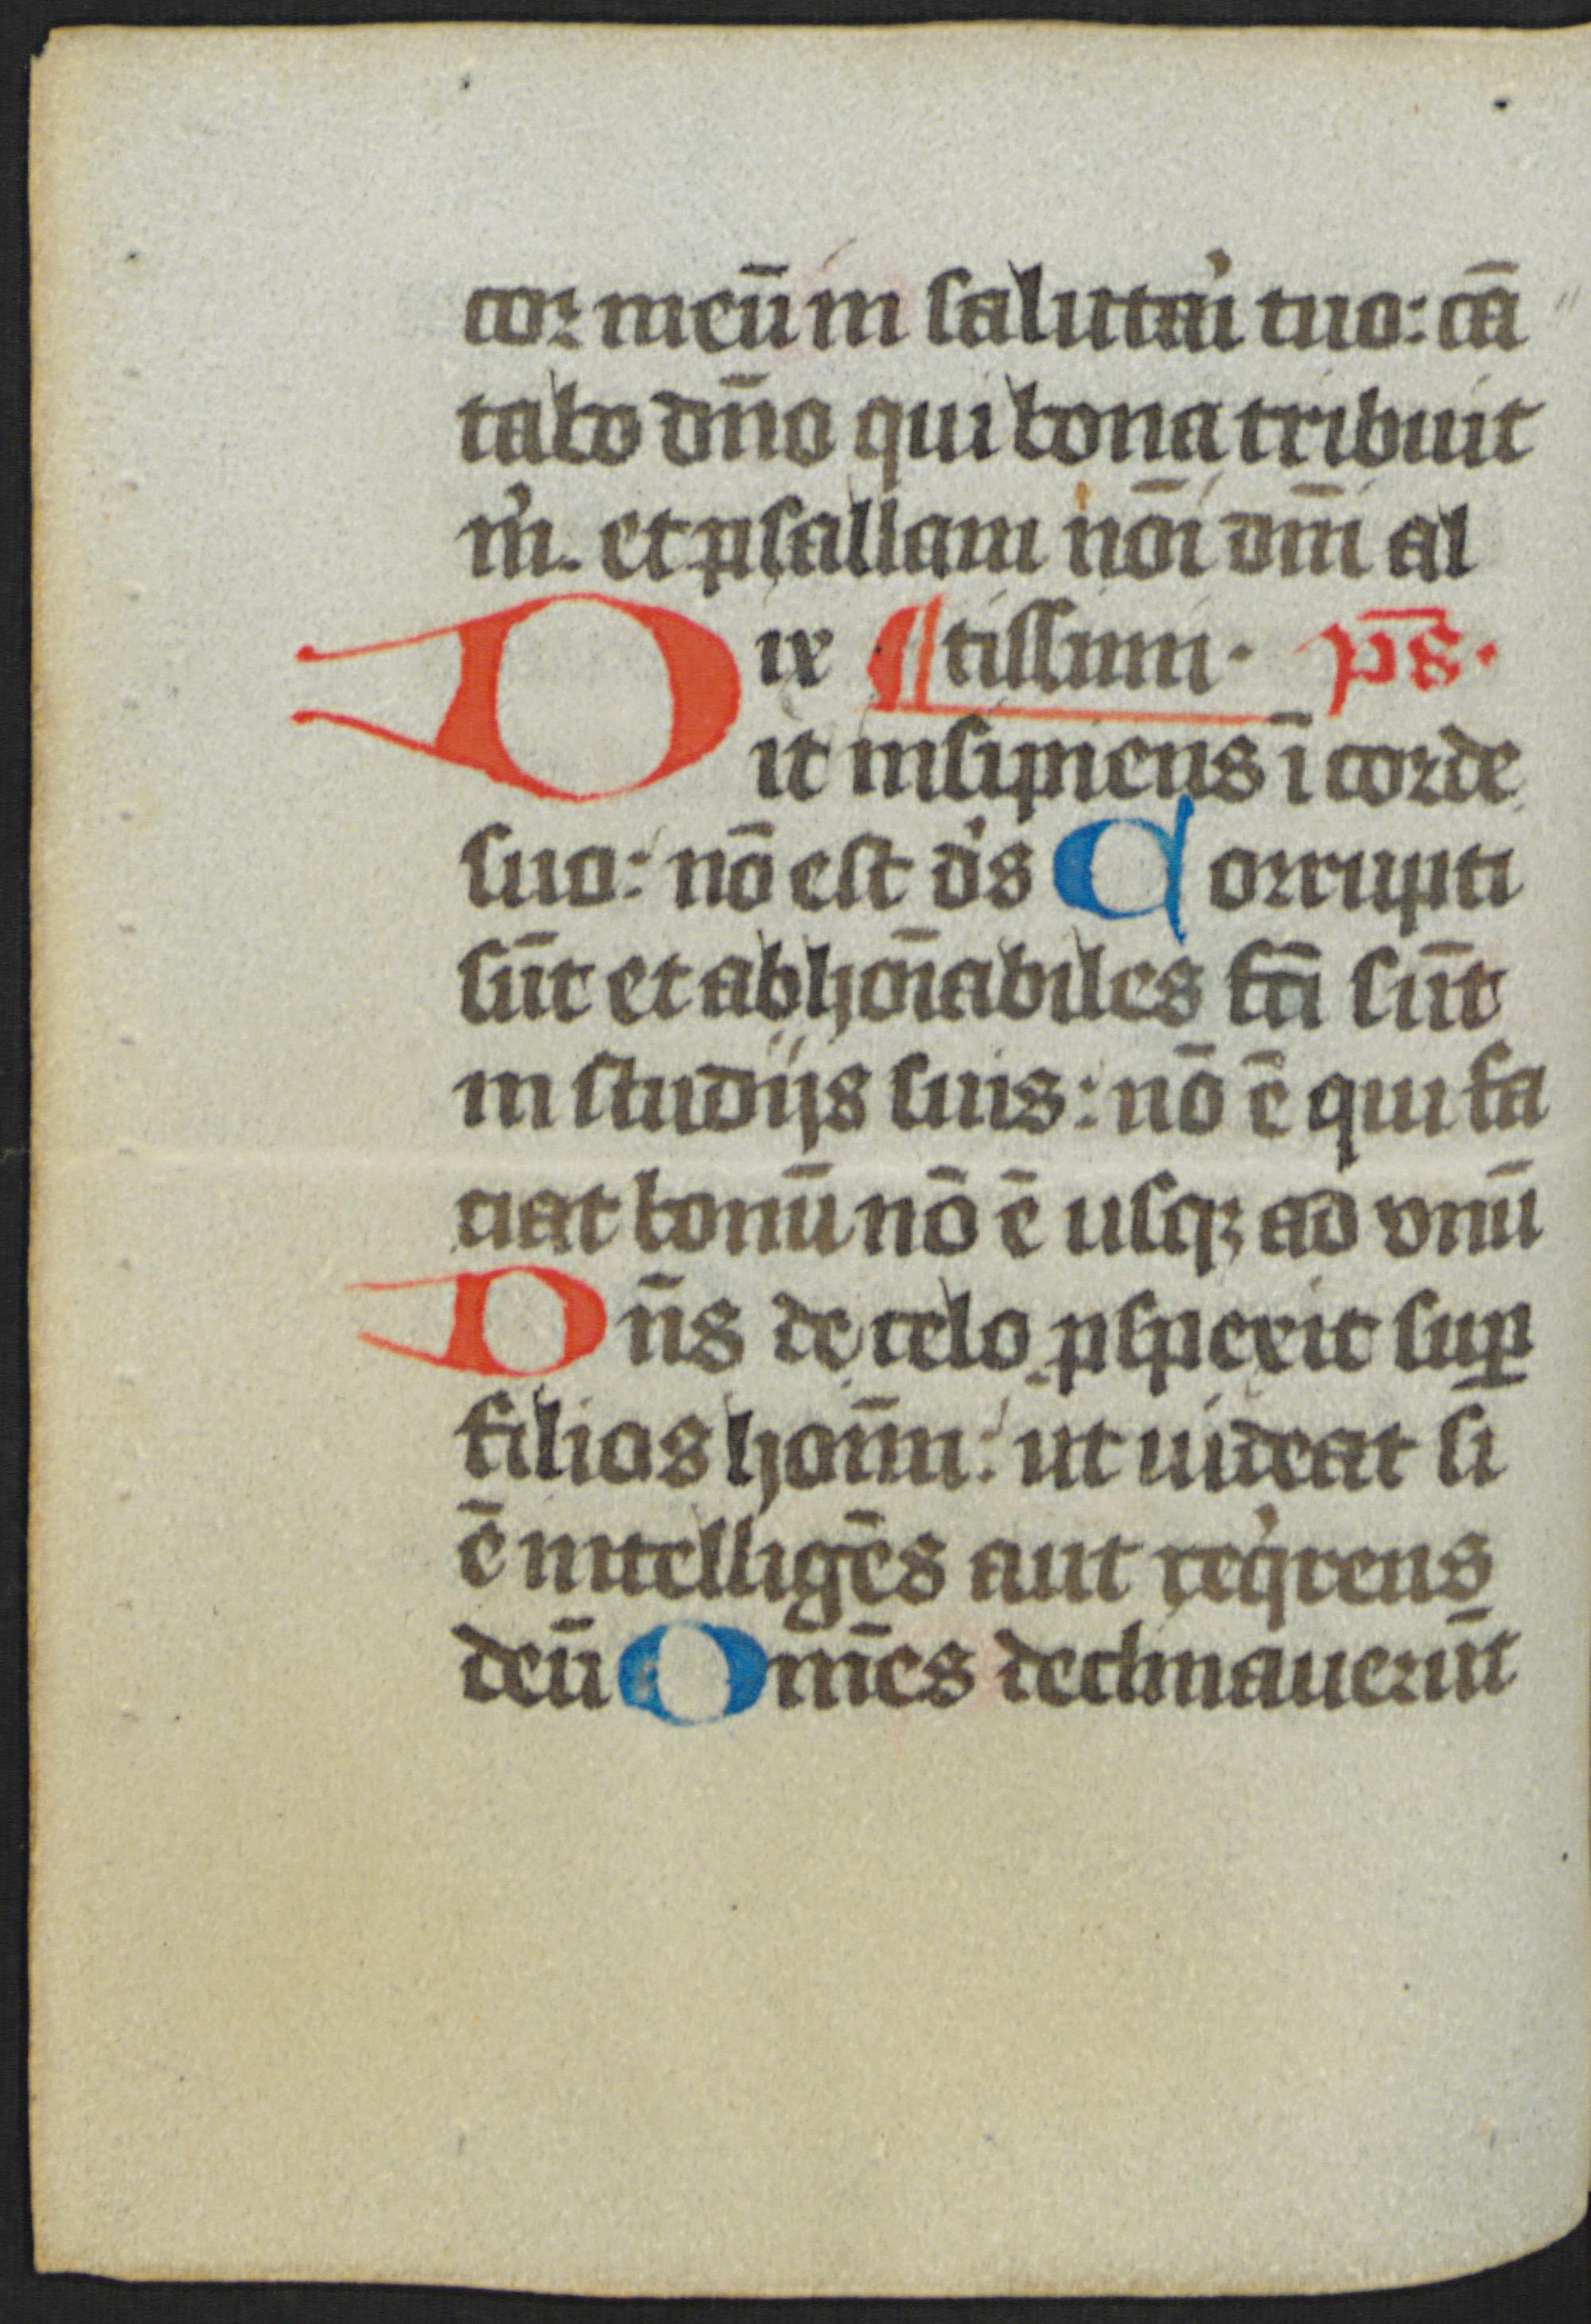 cor meū in salutaʼi tuo: cā
tabo dn̄o qui bona tribuit
mʼ. et psallam nōi dn̄i al
Dix ¶ tissimi. p̄s.
it insipiens ī corde
suo: nō est dʼs Corrupti
sūt et abhoīabiles fc̄i sūt
in studijs suis: nō ē qui fa
ciat bonū nō ē usqꝫ ad vnū
Dn̄s de celo ꝓspexit suꝑ
filios hoīm: ut uideat si
ē intelligēs aut reqʼrens
deū Om̄es declinauerūt